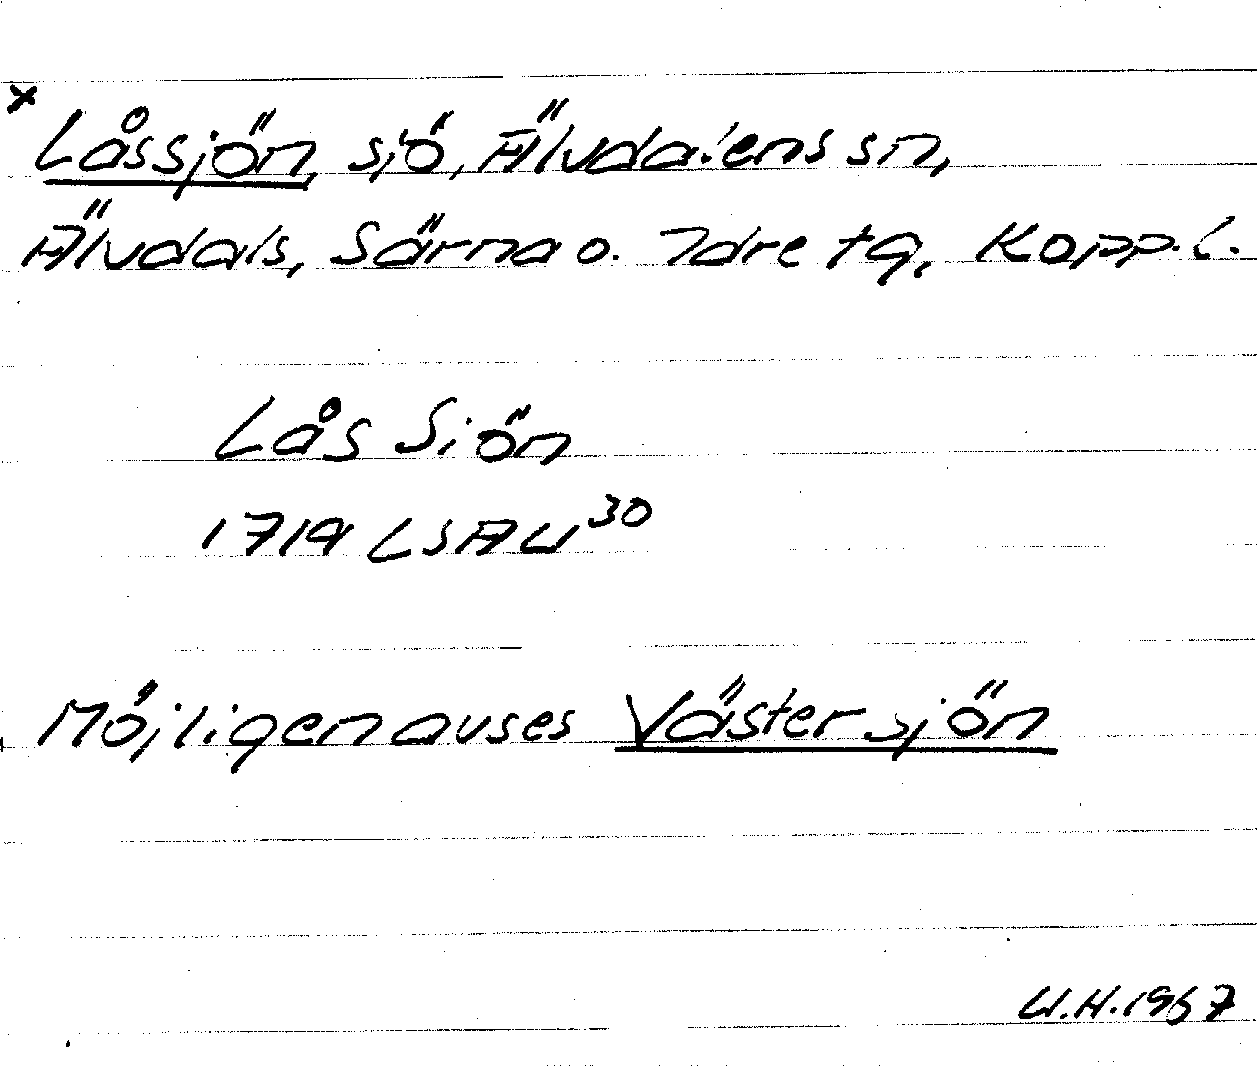 × Låssjön, sjö, Älvdalens sn,
Älvdals, Särna o. Idre tg, Kopp. l.
Lås Siön
1719 LSA U³⁰
Möjligen avses Västersjön
U.H. 1967